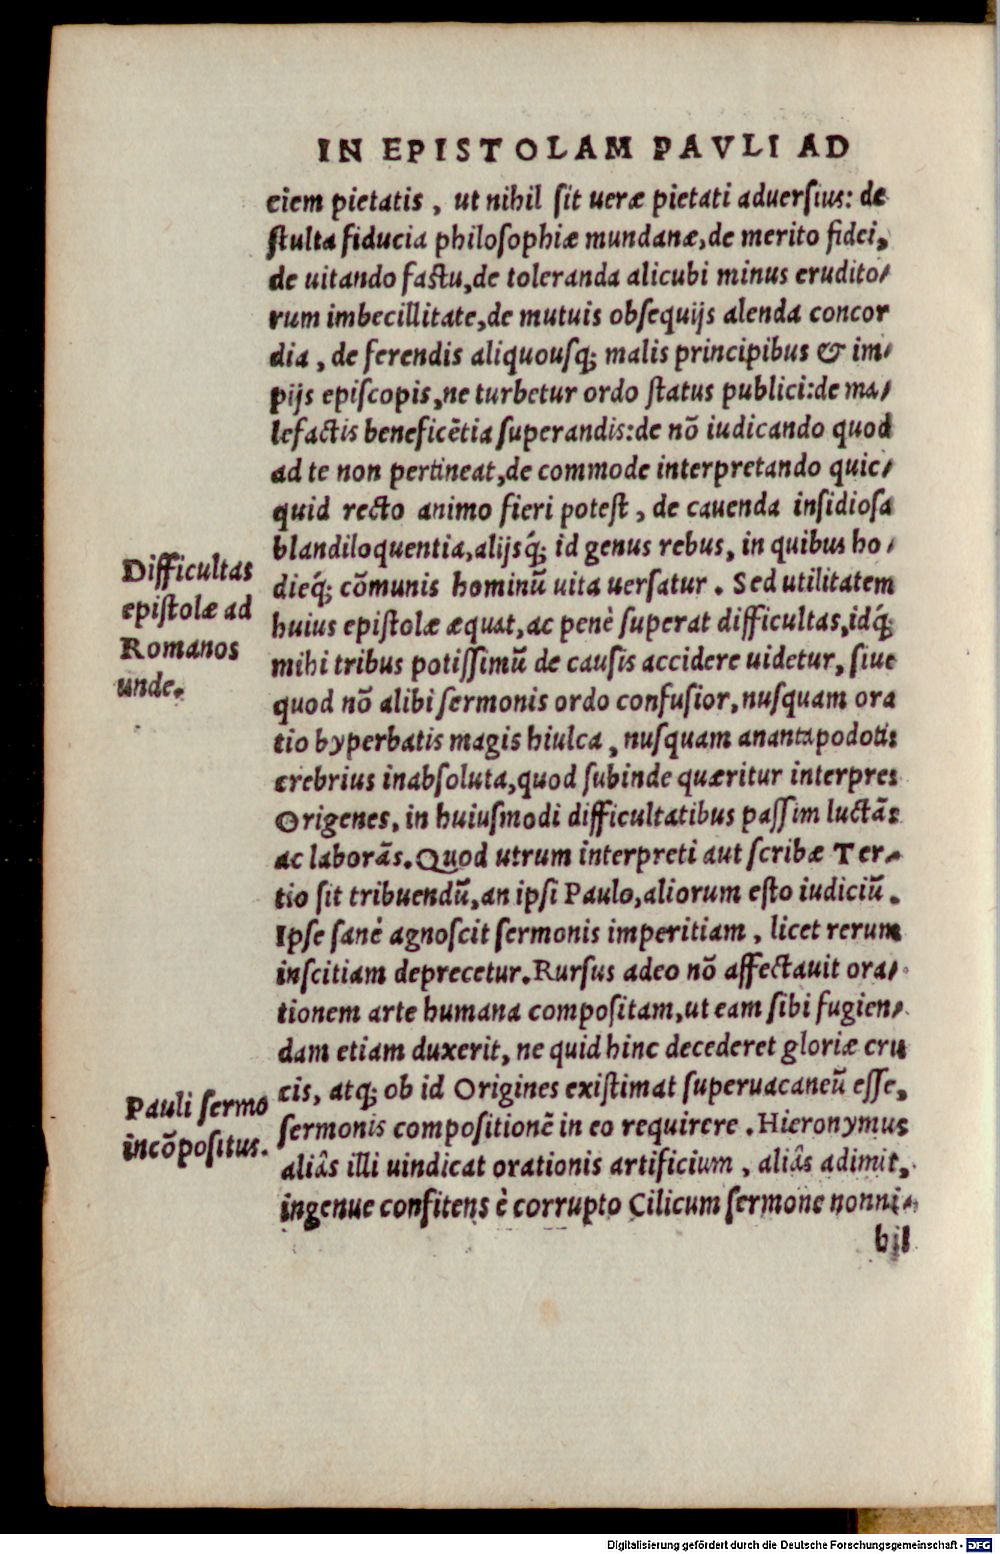 IN EPISTOLAM PAVLI AD
ciem pietatis, ut nihil ſit ueræ pietati aduerſius: de
ſtulta fiducia philoſophiæ mundanæ, de merito fidei,
de uitando faſtu, de toleranda alicubi minus erudito/
rum imbecillitate, de mutuis obſequijs alenda concor
dia, de ferendis aliquouſq; malis principibus & im/
pijs epiſcopis, ne turbetur ordo ſtatus publici: de ma/
lefactis beneficẽtia ſuperandis: de nõ iudicando quod
ad te non pertineat, de commode interpretando quic/
quid recto animo fieri poteſt, de cauenda inſidioſa
blandiloquentia, alijsq́; id genus rebus, in quibus ho/
dieq́; cõmunis hominũ uita uerſatur. Sed utilitatem
huius epiſtolæ æquat, ac penè ſuperat difficultas, idq́;
mihi tribus potiſſimũ de cauſis accidere uidetur, ſiue
quod nõ alibi ſermonis ordo confuſior, nuſquam ora
tio hyperbatis magis hiulca, nuſquam anantapodotis
crebrius inabſoluta, quod ſubinde quæritur interpres
Origenes, in huiuſmodi difficultatibus paſſim luctãs
ac laborãs. Quod utrum interpreti aut ſcribæ Ter/
tio ſit tribuendũ, an ipſi Paulo, aliorum eſto iudiciũ.
Ipſe ſanè agnoſcit ſermonis imperitiam, licet rerum
inſcitiam deprecetur. Rurſus adeo nõ affectauit ora/
tionem arte humana compoſitam, ut eam ſibi fugien/
dam etiam duxerit, ne quid hinc decederet gloriæ cru
cis, atq; ob id Origines exiſtimat ſuperuacaneũ eſſe,
ſermonis compoſitionẽ in eo requirere. Hieronymus
aliâs illi uindicat orationis artificium, aliâs adimit,
ingenue confitens è corrupto Cilicum ſermone nonni/
hil
Difficultas
epiſtolæ ad
Romanos
unde.
Pauli ſermo
incõpoſitus.
Digitalisierung gefördert durch die Deutsche Forschungsgemeinschaft - DFG